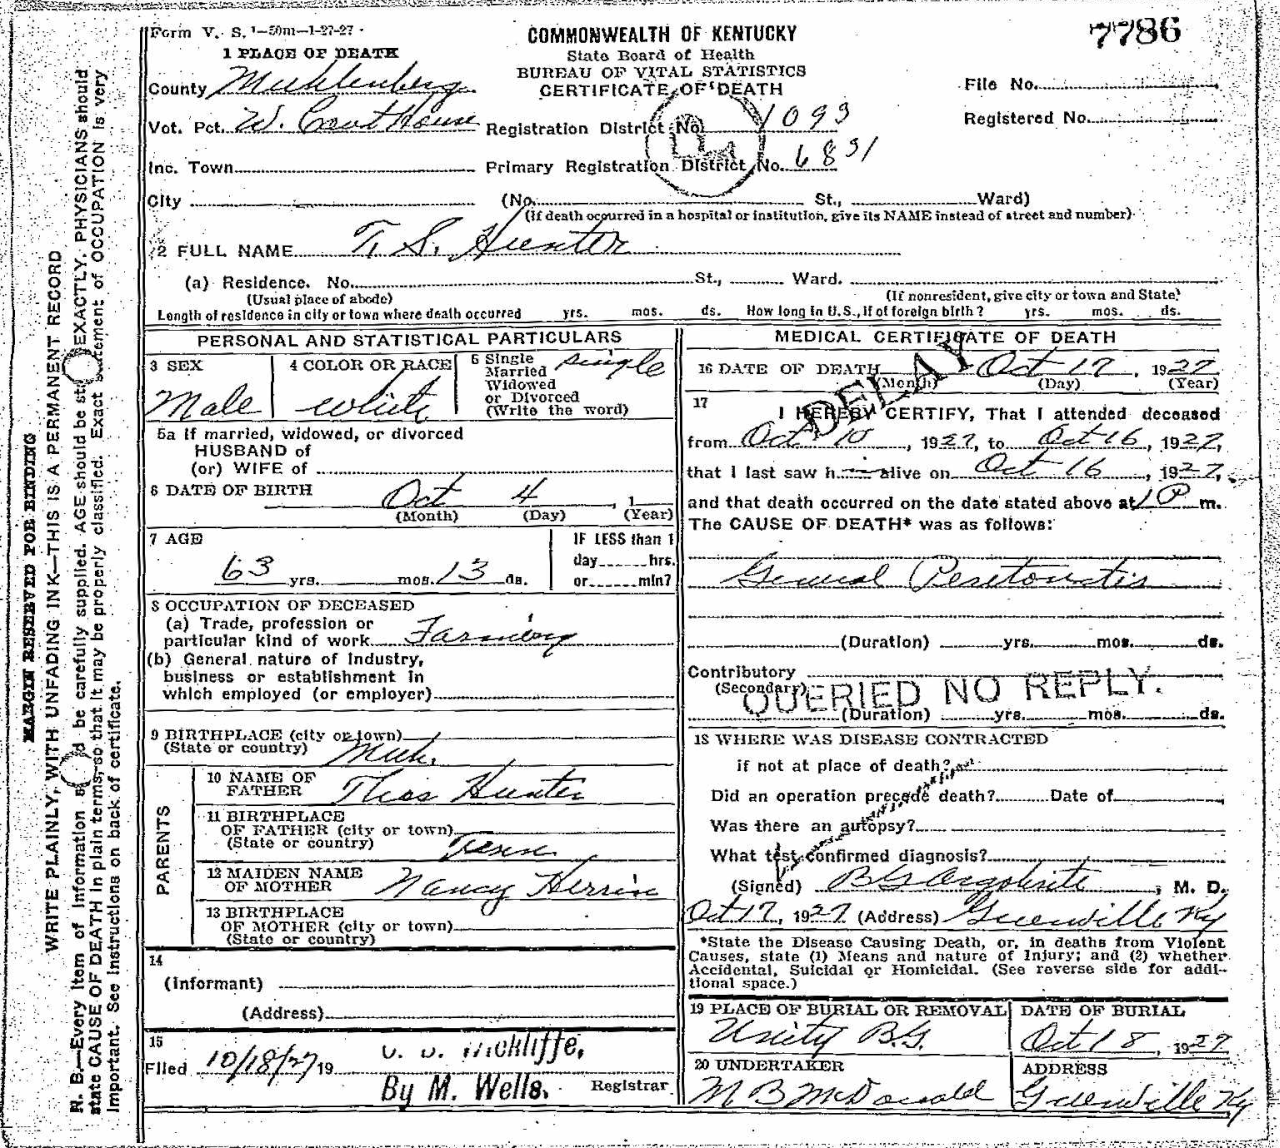 Form V. S. 1-50m-1-27-27
COMMONWEALTH OF KENTUCKY
7786
1 PLACE OF DEATH
State Board of Health
BUREAU OF VITAL STATISTICS
CERTIFICATE OF DEATH
County Muhlenberg
File No.
Vot. Pct. W. Court House
Registration District No. 1093
Registered No.
Inc. Town
Primary Registration District No. 6831
City (No. St., Ward)
(If death occurred in a hospital or institution, give its NAME instead of street and number)
2 FULL NAME T. S. Hunter
(a) Residence. No. St., Ward.
(Usual place of abode) (If nonresident, give city or town and State)
Length of residence in city or town where death occurred yrs. mos. ds. How long in U.S., if of foreign birth? yrs. mos. ds.
PERSONAL AND STATISTICAL PARTICULARS
3 SEX Male
4 COLOR OR RACE White
5 Single
Married
Widowed
or Divorced
(Write the word)
single
5a If married, widowed, or divorced
HUSBAND of
(or) WIFE of
6 DATE OF BIRTH Oct 4, 1
(Month) (Day) (Year)
7 AGE
63 yrs. mos. 13 ds.
IF LESS than 1
day hrs.
or min?
8 OCCUPATION OF DECEASED
(a) Trade, profession or
particular kind of work Farming
(b) General nature of Industry,
business or establishment in
which employed (or employer)
9 BIRTHPLACE (city or town)
(State or country) Muh.
PARENTS
10 NAME OF
FATHER Thos Hunter
11 BIRTHPLACE
OF FATHER (city or town)
(State or country) Tenn
12 MAIDEN NAME
OF MOTHER Nancy Herrin
13 BIRTHPLACE
OF MOTHER (city or town)
(State or country)
14
(Informant)
(Address)
15
Filed 10/18/27 19
Wickliffe,
By M. Wells. Registrar
MEDICAL CERTIFICATE OF DEATH
DELAY
16 DATE OF DEATH Oct 17, 1927
(Month) (Day) (Year)
17
I HEREBY CERTIFY, That I attended deceased
from Oct 10, 1927, to Oct 16, 1927,
that I last saw h alive on Oct 16, 1927,
and that death occurred on the date stated above at 1 P m.
The CAUSE OF DEATH* was as follows:
General Peretonatis
(Duration) yrs. mos. ds.
Contributory
(Secondary)
QUERIED NO REPLY.
(Duration) yrs. mos. ds.
18 WHERE WAS DISEASE CONTRACTED
if not at place of death?
Did an operation precede death? Date of
Was there an autopsy?
What test confirmed diagnosis?
(Signed) , M. D.
Oct 17, 1927 (Address) Greenville Ky
*State the Disease Causing Death, or, in deaths from Violent
Causes, state (1) Means and nature of Injury; and (2) whether
Accidental, Suicidal or Homicidal. (See reverse side for addi-
tional space.)
19 PLACE OF BURIAL OR REMOVAL
Unity B.G.
DATE OF BURIAL
Oct 18, 1927
20 UNDERTAKER
M B McDonald
ADDRESS
Greenville Ky
MARGIN RESERVED FOR BINDING
WRITE PLAINLY, WITH UNFADING INK—THIS IS A PERMANENT RECORD
N. B.—Every item of Information should be carefully supplied. AGE should be stated EXACTLY. PHYSICIANS should
state CAUSE OF DEATH in plain terms, so that it may be properly classified. Exact statement of OCCUPATION is very
important. See instructions on back of certificate.